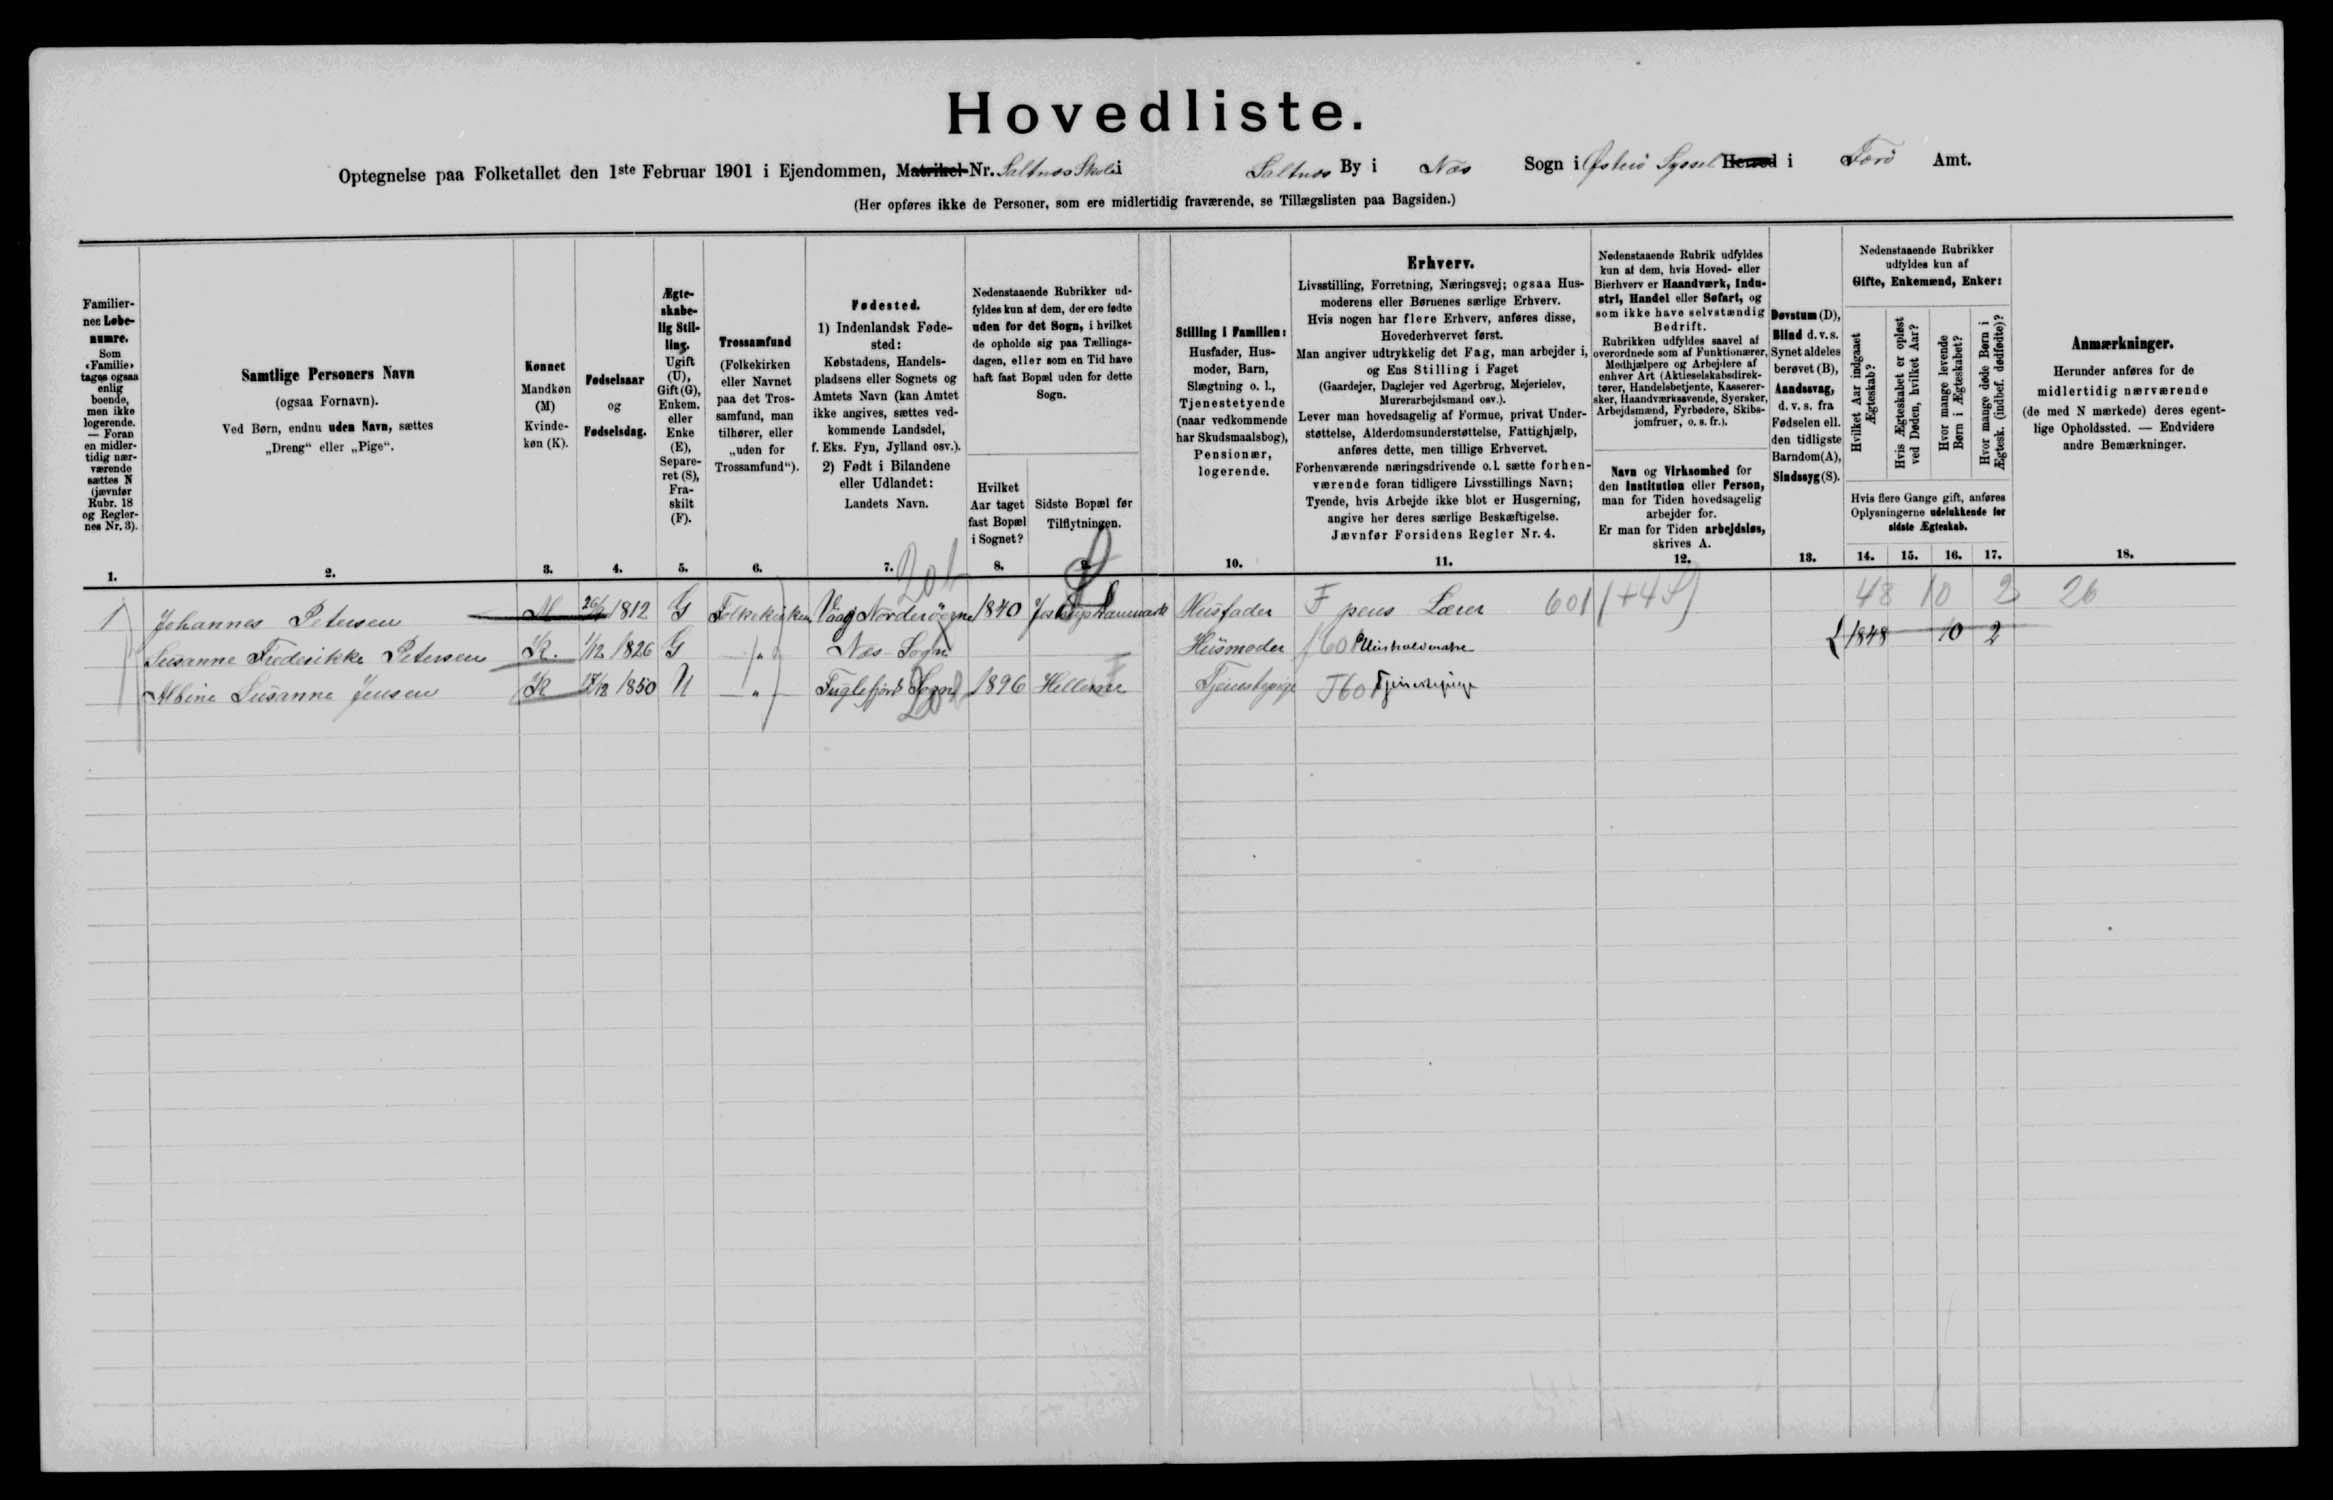 Hovedliste.
Optegnelse paa Folketallet den 1ste Februar 1901 i Ejendommen, Matrikel-Nr. Saltnæs Skole i Saltnæs By i Næs Sogn i Østerö Syssel Herred i Færö Amt.
(Her opføres ikke de Personer, som ere midlertidig fraværende, se Tillægslisten paa Bagsiden.)
Familier-
nes Løbe-
numre.
Som
«Familie»
tages ogsaa
enlig
boende,
men ikke
logerende.
— Foran
en midler-
tidig nær-
værende
sættes N
(jævnfør
Rubr. 18
og Regler-
nes Nr. 3).
1.
Samtlige Personers Navn
(ogsaa Fornavn).
Ved Børn, endnu uden Navn, sættes
„Dreng“ eller „Pige“.
2.
Kønnet
Mandkøn
(M)
Kvinde-
køn (K).
3.
Fødselsaar
og
Fødselsdag.
4.
Ægte-
skabe-
lig Stil-
ling.
Ugift
(U),
Gift (G),
Enkem.
eller
Enke
(E),
Separe-
ret (S),
Fra-
skilt
(F).
5.
Trossamfund
(Folkekirken
eller Navnet
paa det Tros-
samfund, man
tilhører, eller
„uden for
Trossamfund“).
6.
Fødested.
1) Indenlandsk Føde-
sted:
Købstadens, Handels-
pladsens eller Sognets og
Amtets Navn (kan Amtet
ikke angives, sættes ved-
kommende Landsdel,
f. Eks. Fyn, Jylland osv.).
2) Født i Bilandene
eller Udlandet:
Landets Navn.
7.
Nedenstaaende Rubrikker ud-
fyldes kun af dem, der ere fødte
uden for det Sogn, i hvilket
de opholde sig paa Tællings-
dagen, eller som en Tid have
haft fast Bopæl uden for dette
Sogn.
Hvilket
Aar taget
fast Bopæl
i Sognet?
8.
Sidste Bopæl før
Tilflytningen.
9.
Stilling i Familien:
Husfader, Hus-
moder, Barn,
Slægtning o. l.,
Tjenestetyende
(naar vedkommende
har Skudsmaalsbog),
Pensionær,
logerende.
10.
Erhverv.
Livsstilling, Forretning, Næringsvej; ogsaa Hus-
moderens eller Børnenes særlige Erhverv.
Hvis nogen har flere Erhverv, anføres disse,
Hovederhvervet først.
Man angiver udtrykkelig det Fag, man arbejder i,
og Ens Stilling i Faget
(Gaardejer, Daglejer ved Agerbrug, Mejerielev,
Murerarbejdsmand osv.).
Lever man hovedsagelig af Formue, privat Under-
støttelse, Alderdomsunderstøttelse, Fattighjælp,
anføres dette, men tillige Erhvervet.
Forhenværende næringsdrivende o. l. sætte forhen-
værende foran tidligere Livsstillings Navn;
Tyende, hvis Arbejde ikke blot er Husgerning,
angive her deres særlige Beskæftigelse.
Jævnfør Forsidens Regler Nr. 4.
11.
Nedenstaaende Rubrik udfyldes
kun af dem, hvis Hoved- eller
Bierhverv er Haandværk, Indu-
stri, Handel eller Søfart, og
som ikke have selvstændig
Bedrift.
Rubrikken udfyldes saavel af
overordnede som af Funktionærer,
Medhjælpere og Arbejdere af
enhver Art (Aktieselskabsdirek-
tører, Handelsbetjente, Kasserer-
sker, Haandværkssvende, Syersker,
Arbejdsmænd, Fyrbødere, Skibs-
jomfruer, o. s. fr.).
Navn og Virksomhed for
den Institution eller Person,
man for Tiden hovedsagelig
arbejder for.
Er man for Tiden arbejdsløs,
skrives A.
12.
Døvstum (D),
Blind d. v. s.
Synet aldeles
berøvet (B),
Aandssvag,
d. v. s. fra
Fødselen ell.
den tidligste
Barndom (A),
Sindssyg (S).
13.
Nedenstaaende Rubrikker
udfyldes kun af
Gifte, Enkemænd, Enker:
Hvilket Aar indgaaet
Ægteskab?
Hvis Ægteskabet er opløst
ved Døden, hvilket Aar?
Hvor mange levende
Børn i Ægteskabet?
Hvor mange døde Børn i
Ægtesk. (indbef. dødfødte)?
Hvis flere Gange gift, anføres
Oplysningerne udelukkende for
sidste Ægteskab.
14. 15. 16. 17.
Anmærkninger.
Herunder anføres for de
midlertidig nærværende
(de med N mærkede) deres egent-
lige Opholdssted. — Endvidere
andre Bemærkninger.
18.
1 Johannes Petersen M 1812 G Folkekirken Vaag Norderöerne 1840 Husfader F pens Lærer 601 48 10 2 26
Susanne Frederikke Petersen K. 1/12 1826 G " Næs Sogn Husmoder 1848 10 2
Albine Susanne Jensen K 1850 U " Fuglefjord Sogn 1896 Hellerne Tjenestepige Tjenestepige